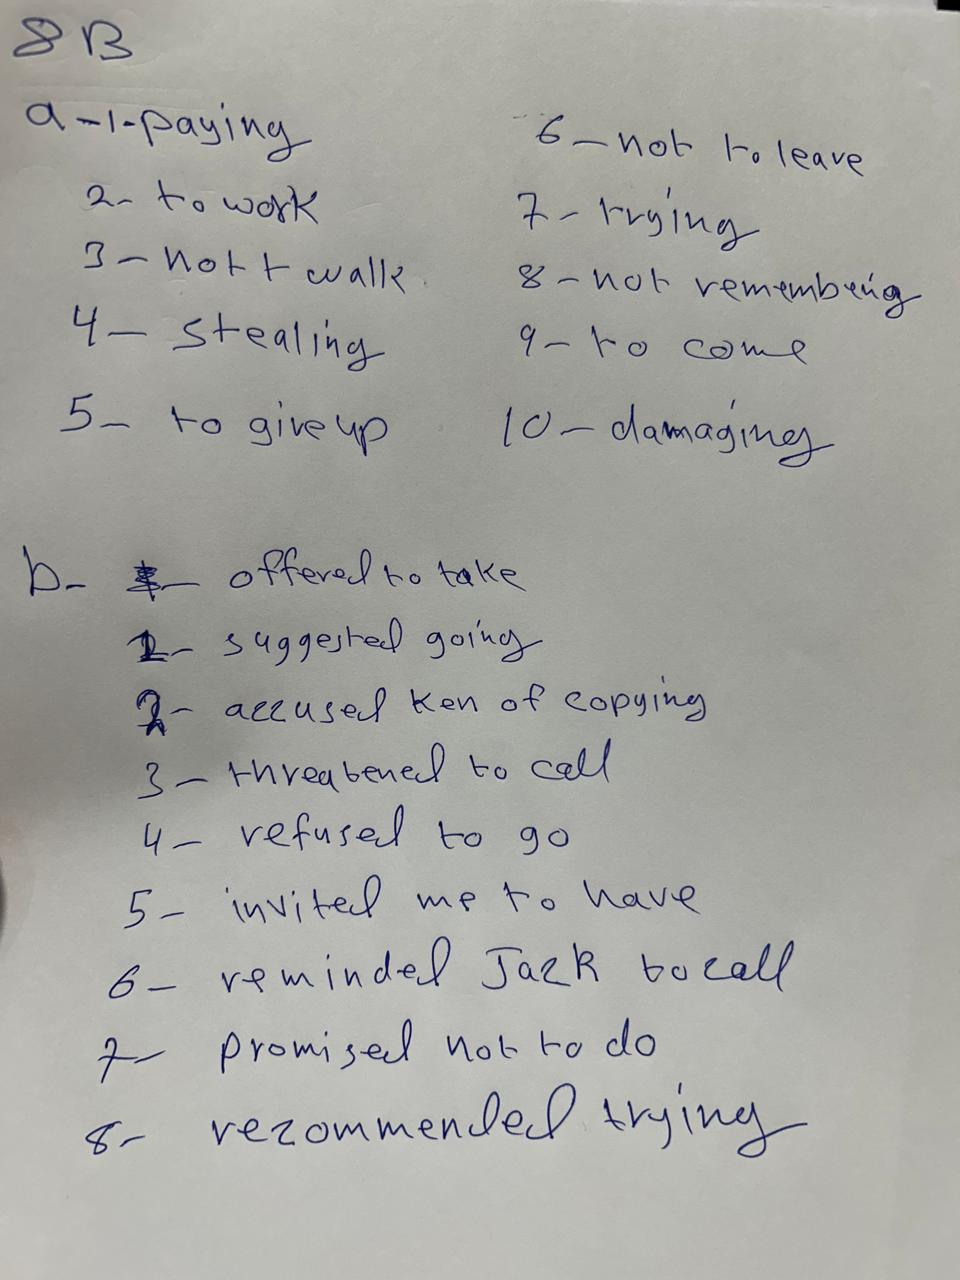 8B
a-1-paying
2- to work
3- not t walk
4- stealing
5- to give up
6- not to leave
7- trying
8- not remembeing
9- to come
10- damaging
b- offered to take
1- suggested going
2- accused Ken of copying
3- threatened to call
4- refused to go
5- invited me to have
6- reminded Jack to call
7- promised not to do
8- recommended trying